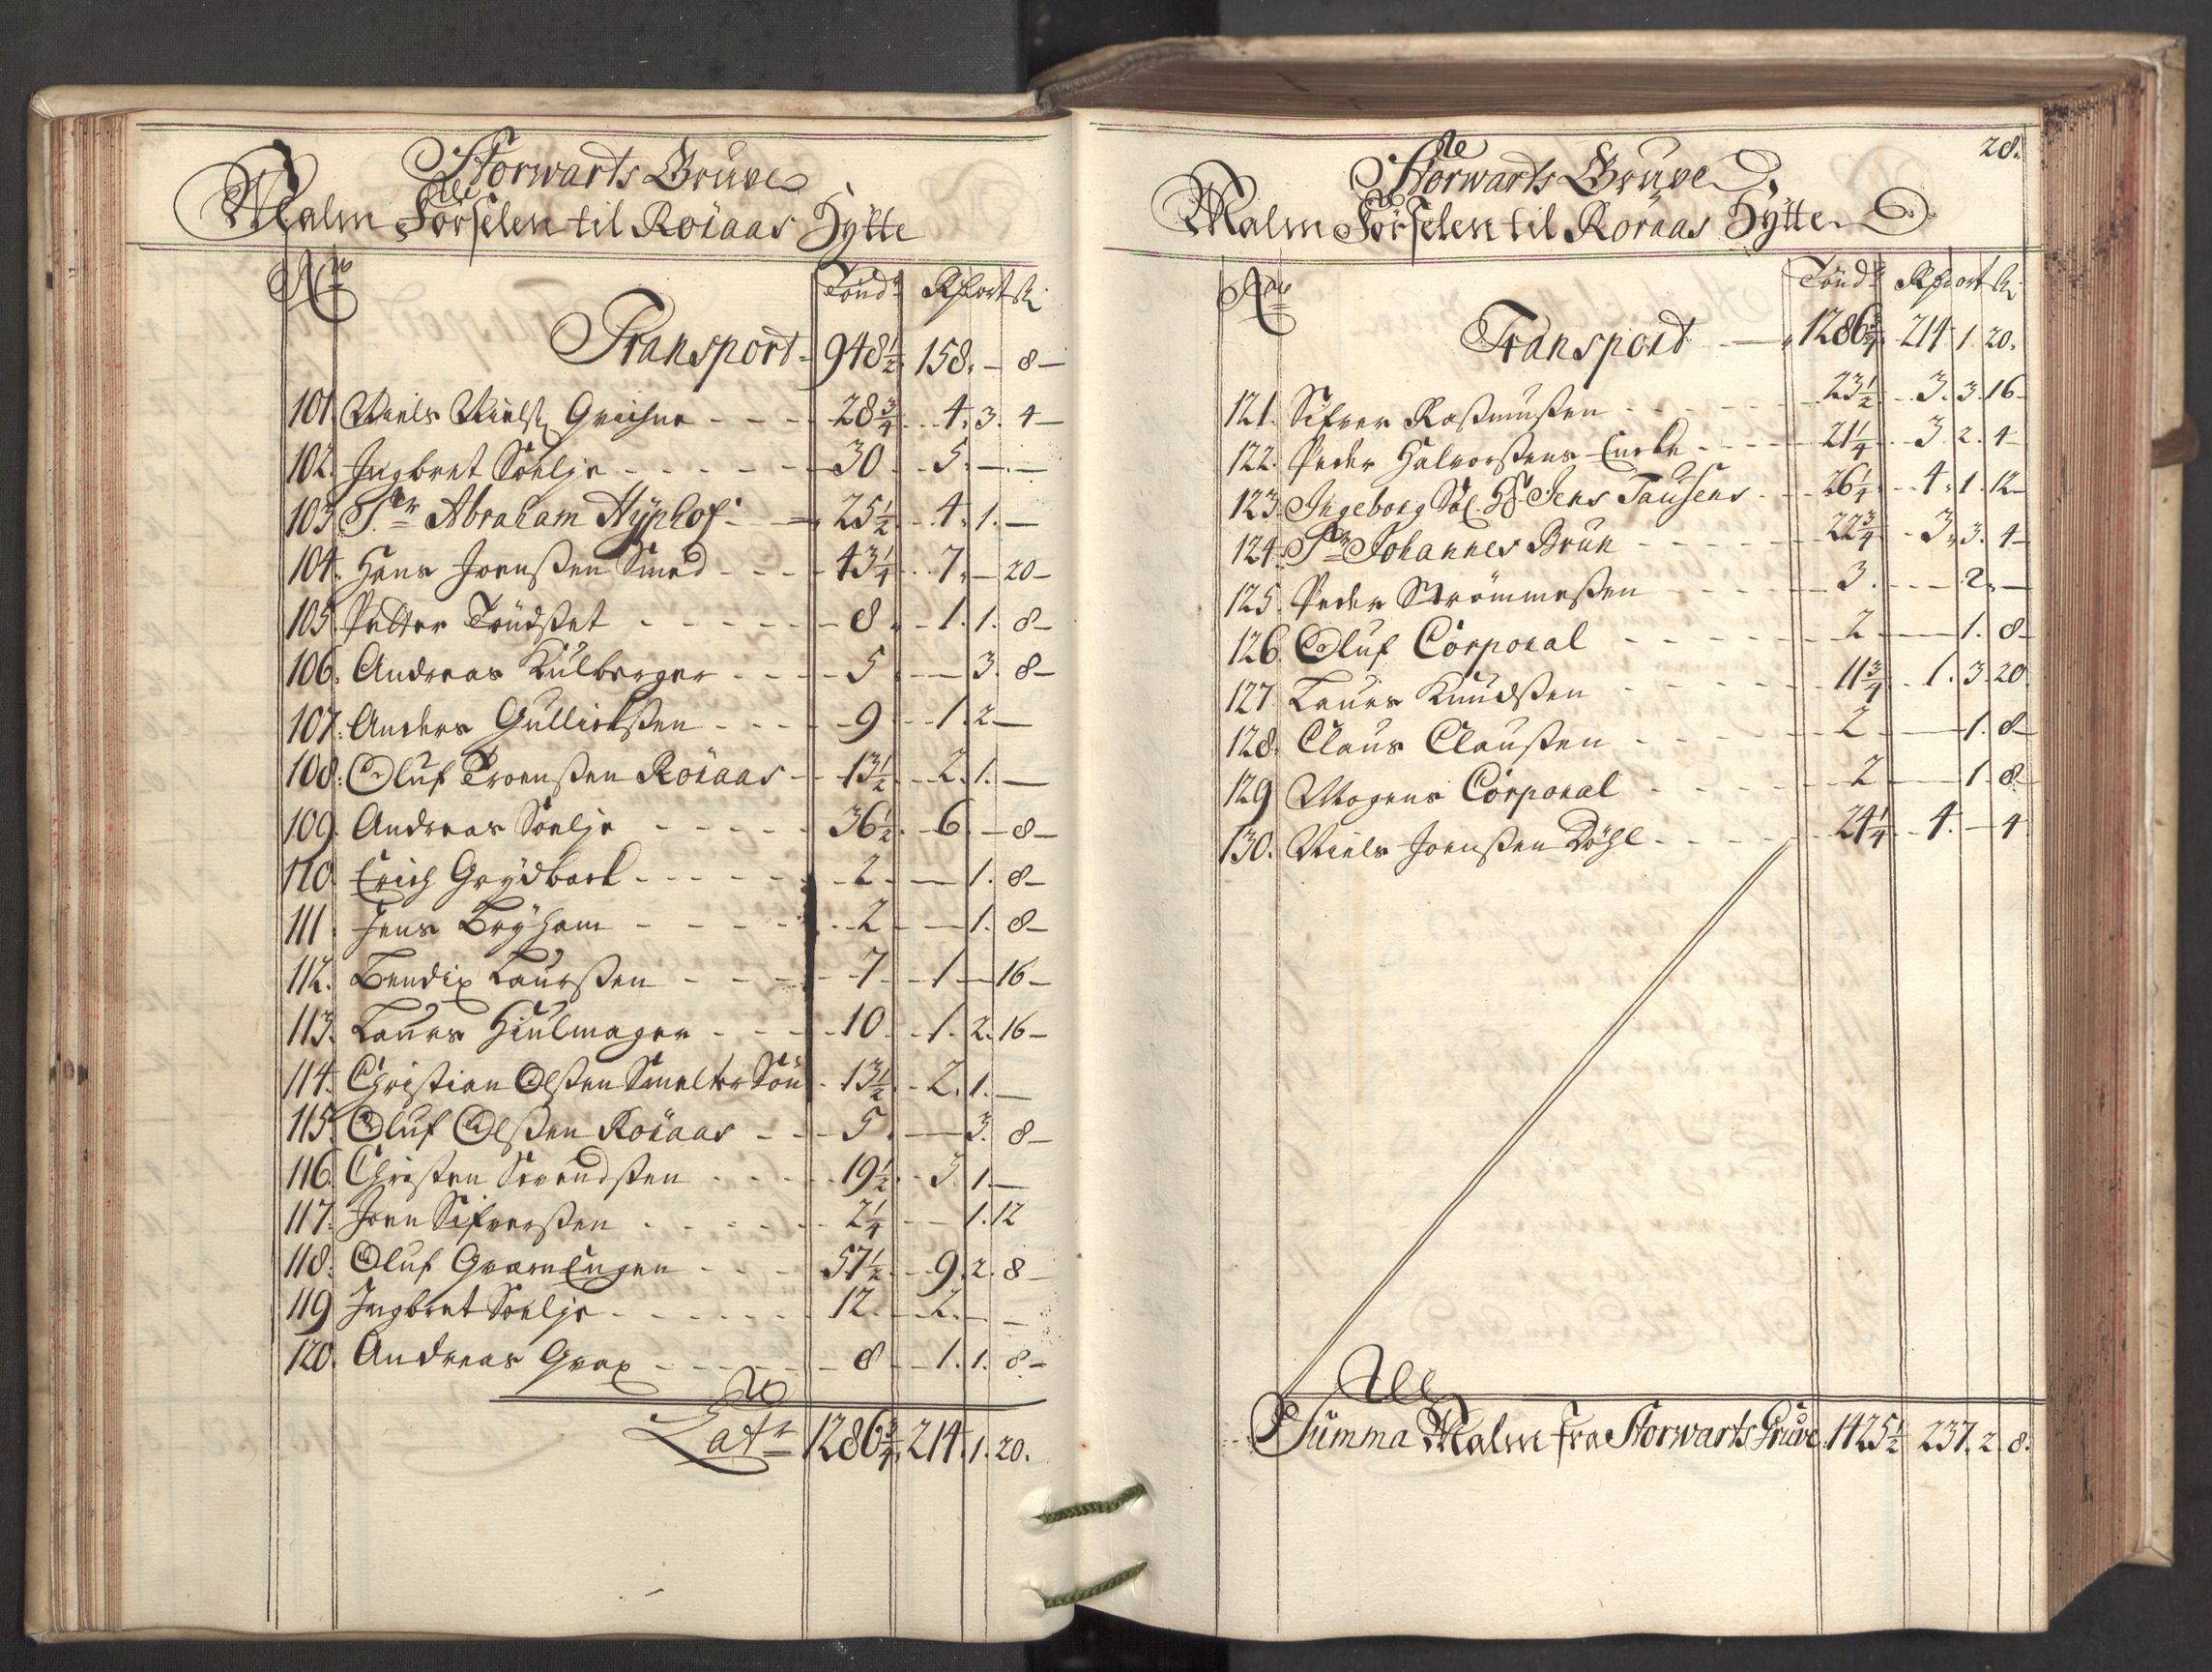 Storwarts Gruve
Malm Förselen til Röraas Hytte
No Tönd. Rd ort ß
Transport - 948 1/2 158. - 8 -
101. Niels Nielß. - - - 28 3/4 - 4. 3. 4 -
102. Ingbret Soelje - - - 30 - 5. - . -
103. Sr. Abraham Hÿphof - 25 1/2 - 4. 1. -
104. Hans Joenßen Smed - - - 43 1/4 - 7. - 20 -
105. Petter Töndßet - - - 8 - 1. 1. 8 -
106. Andreas Kulberger - - - 5 - - 3. 8 -
107. Anders Gullichßen - - - 9 - 1. 2 -
108. Oluf Troenßen Röraas - 13 1/2 - 2. 1. -
109. Andreas Soelje - - - 36 1/2 - 6. - 8 -
110. Erich Grÿdback - - - 2 - - 1. 8 -
111. Jens Brÿham - - - 2 - - 1. 8 -
112. Bendix Laurßen - - - 7 - 1 - 16 -
113. Laurs Hiulmager - - - 10 - 1. 2. 16 -
114. Christian Olßen Smelter Sön - 13 1/2 - 2. 1. -
115. Oluf Olßen Röraas - - 5 - - 3. 8 -
116. Christen Svendßen - - - 19 1/2 - 3. 1. -
117. Joen Sifverßen - - - 2 1/4 - - 1. 12
118. Oluf Qværnengen - - - 57 1/2 - 9. 2. 8 -
119. Ingbret Soelje - - - 12 - 2. - -
120. Andreas Grax - - - 8 - 1. 1. 8 -
Lat. 1286 3/4. 214. 1. 20.
28.
Storwarts Gruve
Malm Förselen til Röraas Hytte
No Tönd. Rd ort ß
Transport - 1286 3/4. 214 1 20.
121. Sifver Raßmußen - - - 23 1/2 - 3. 3. 16 -
122. Peder Halvorßens Encke - - - 21 1/4 - 3. 2. 4 -
123. Ingeborg Sal. Hr. Jens Tausens - 26 1/4 - 4. 1. 12 -
124. Sr. Johannes Brun - - - 22 3/4 - 3. 3. 4 -
125. Peder Strömmeßen - - - 3. - - 2. -
126. Oluf Corporal - - - 2 - - 1. 8 -
127. Laurs Knudßen - - - 11 3/4 - 1. 3. 20
128. Claus Claußen - - - 2 - - 1. 8 -
129. Mogens Corporal - - - 2 - - 1. 8 -
130. Niels Joenßen - - - 24 1/4 - 4. - 4
Summa Malm fra Storwarts Gruve 1425 1/2 237. 2. 8.